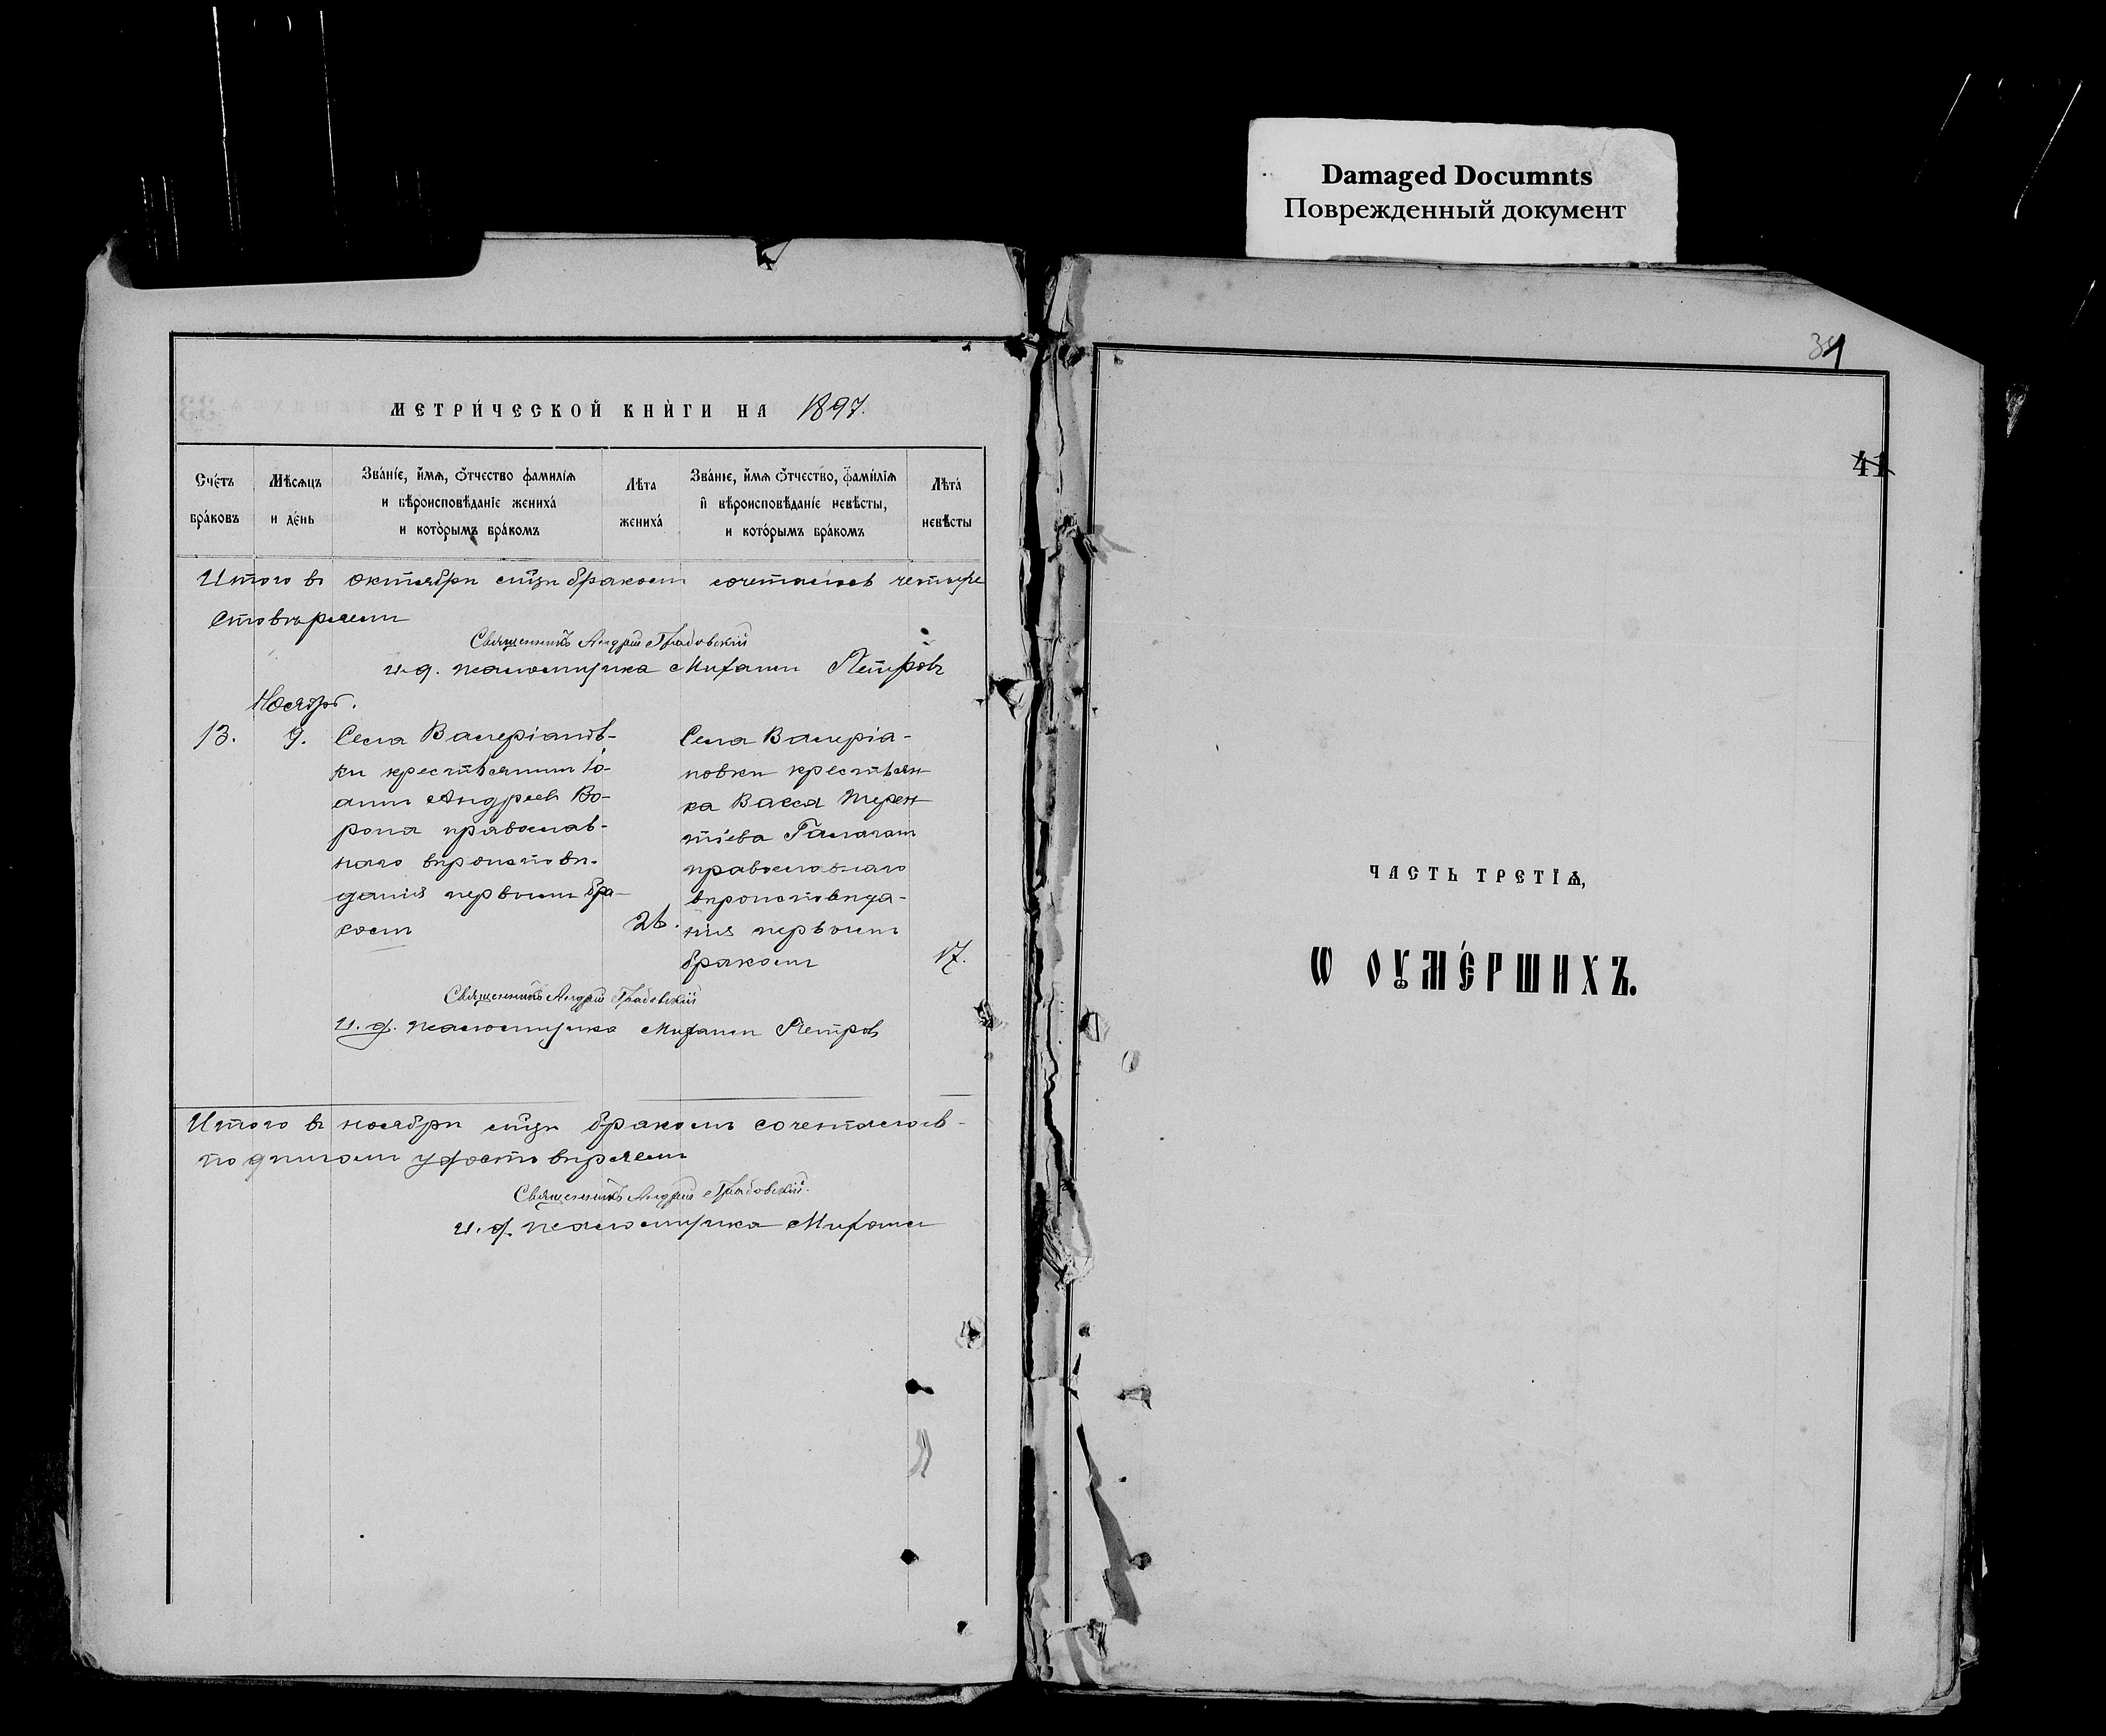 Damaged Documnts
Поврежденный документ
МЕТРИ́ЧЕСКОЙ КНИ́ГИ НА 1897.
Сче́тъ бра́ковъ
Мѣсѧцъ и де́нь
Зва́нїе, и҆́мѧ, ѻ҆́тчество фамилїѧ и вѣроисповѣданїе жениха́ и кото́рымъ бра́комъ
Лѣта жениха́
Зва́нїе, и҆́мѧ ѻ҆́тчество, фами́лїѧ и҆ вѣроисповѣданїе невѣсты, и кото́рымъ бра́комъ
Лѣта́ невѣсты
Итого въ октябрѣ мцѣ бракомъ сочеталось четыре
Священникъ Андрей Грабовскій
и. д. псаломщика Михаилъ Петровъ
Ноябрь.
13.
9.
Села Валеріанов-
ки крестьянинъ Іо-
аннъ Андреевъ Во-
рона православ-
наго вѣроисповѣ-
данія первымъ бра-
комъ
26.
Села Валеріа-
новки крестьян-
ка Васса Терен-
тіева Галаганъ
православнаго
вѣроисповѣда-
нія первымъ
бракомъ
17.
Священникъ Андрей Грабовскій
и. д. псаломщика Михаилъ Петровъ
Итого въ ноябрѣ мцѣ бракомъ сочеталось
Священникъ Андрей Грабовскій.
и. д. псаломщика Михаилъ
41
ЧАСТЬ ТРЕТЇѦ,
Ѡ ОУМЕ́РШИХЪ.